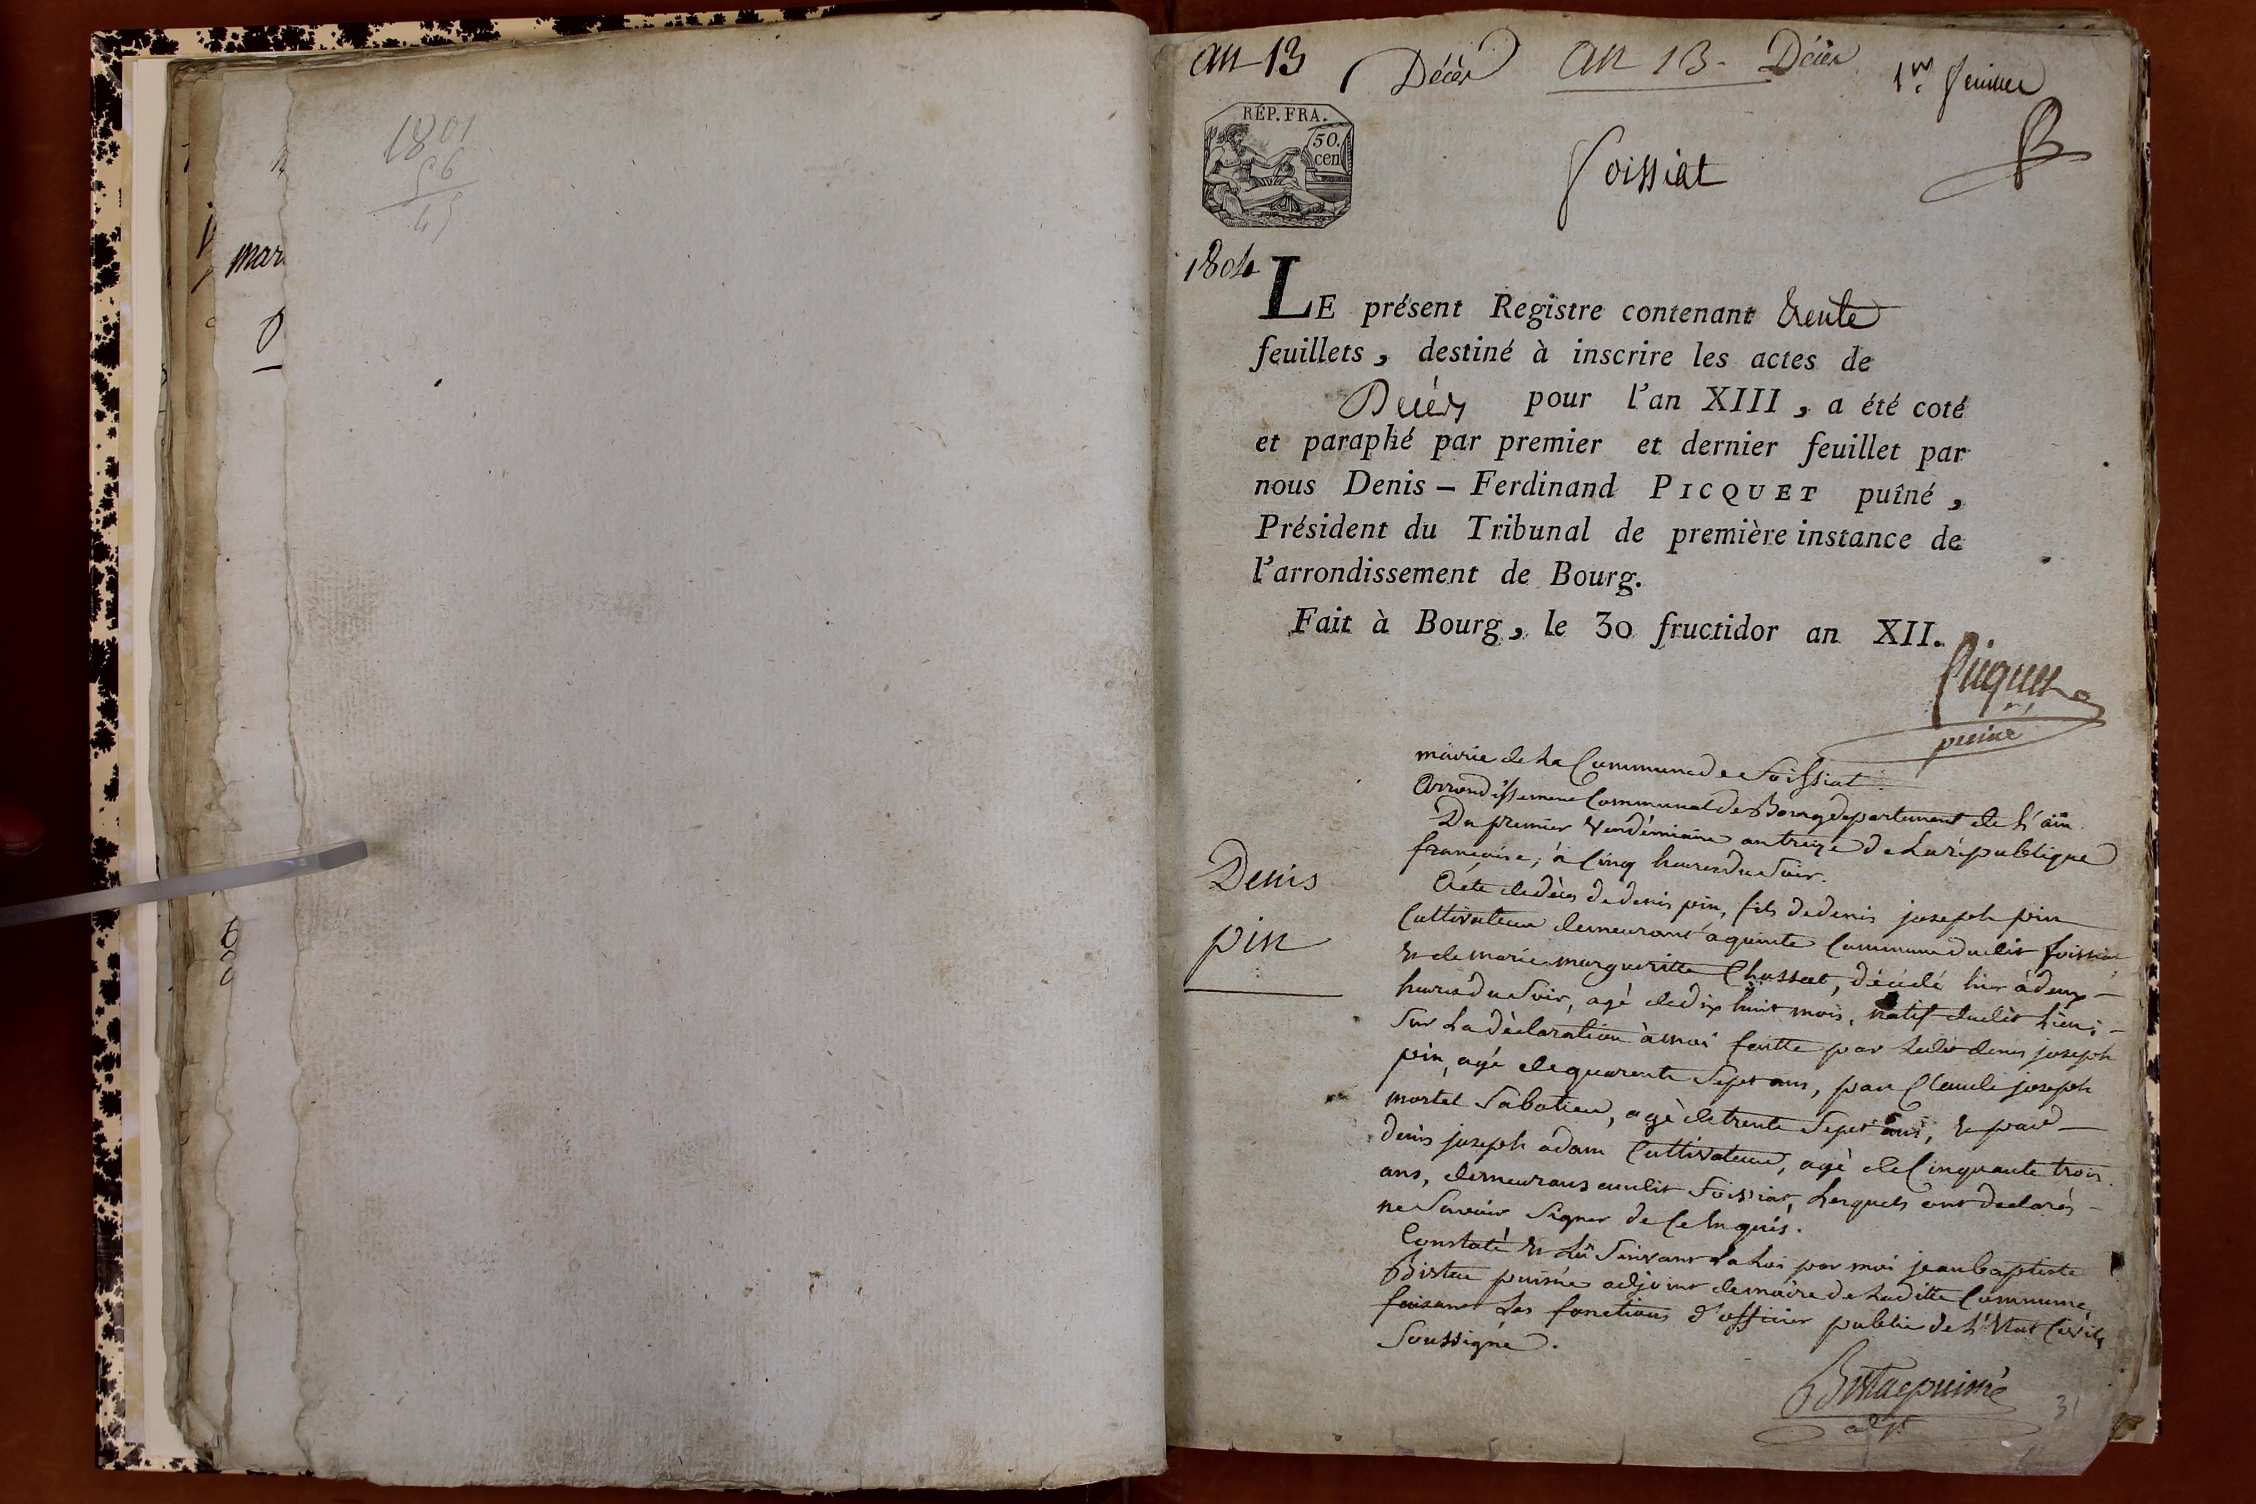 1801
56
45
mar
an 13
Décès
an 13 - Décès
1er feuillet
RÉP. FRA.
50.
cen
foissiat
1804
LE présent Registre contenant trente
feuillets, destiné à inscrire les actes de
Décès pour l'an XIII, a été coté
et paraphé par premier et dernier feuillet par
nous Denis - Ferdinand PICQUET puîné,
Président du Tribunal de première instance de
l'arrondissement de Bourg.
Fait à Bourg, le 30 fructidor an XII.
Picquet
puiné
mairie de La Commune de Foissiat
Arrondissement Communal de Bourg departement de L'ain
Du premier Vendémiaire an treize de La république
française, à Cinq heures du Soir.
Denis
pin
Acte de décès de denis pin, fils de denis joseph pin
Cultivateur demeurant a quinte Commune dudit foissiat
et de marie margueritte Chassat, décédé hier à deux
heures du Soir, agé de dix huit mois, natif dudit Lieu;
Sur La dèclaration à moi faitte par Ledit denis joseph
pin, agé de quarente Sept ans, par Claude joseph
mortel Sabotier, agè de trente Sept ans, et par
denis joseph adam Cultivateur, agè de Cinquante trois
ans, demeurans audit Foissiat, Lesquels ont declarés
ne Savoir Signer de Ce Enquis.
Constaté et Lû Suivant La Loi par moi jean baptiste
Bistac puisné adjoint de maire de Laditte Commune,
faisant Les fonctions d'officier public de L'Etat Civil,
Soussigné.
Bistac puisné
adjt
31